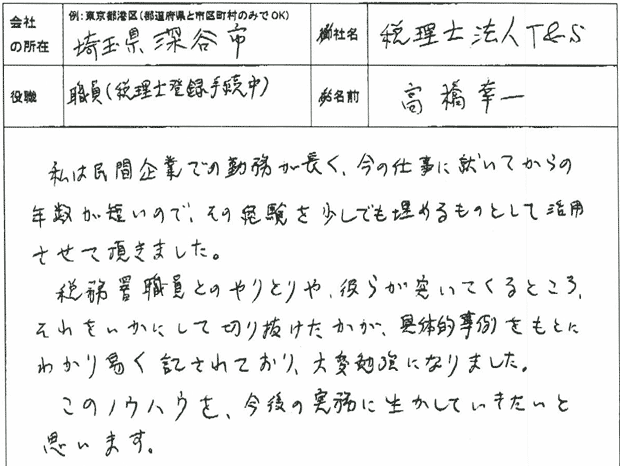 会社の所在
例：東京都港区（都道府県と市区町村のみでOK）
埼玉県深谷市
御社名
税理士法人T&S
役職
職員(税理士登録手続中)
お名前
高橋幸一
私は民間企業での勤務が長く、今の仕事に就いてからの
年数が短いので、その経験を少しでも埋めるものとして活用
させて頂きました。
税務署職員とのやりとりや、彼らが突いてくるところ、
それをいかにして切り抜けたかが、具体的事例をもとに
わかり易く記されており、大変勉強になりました。
このノウハウを、今後の実務に生かしていきたいと
思います。